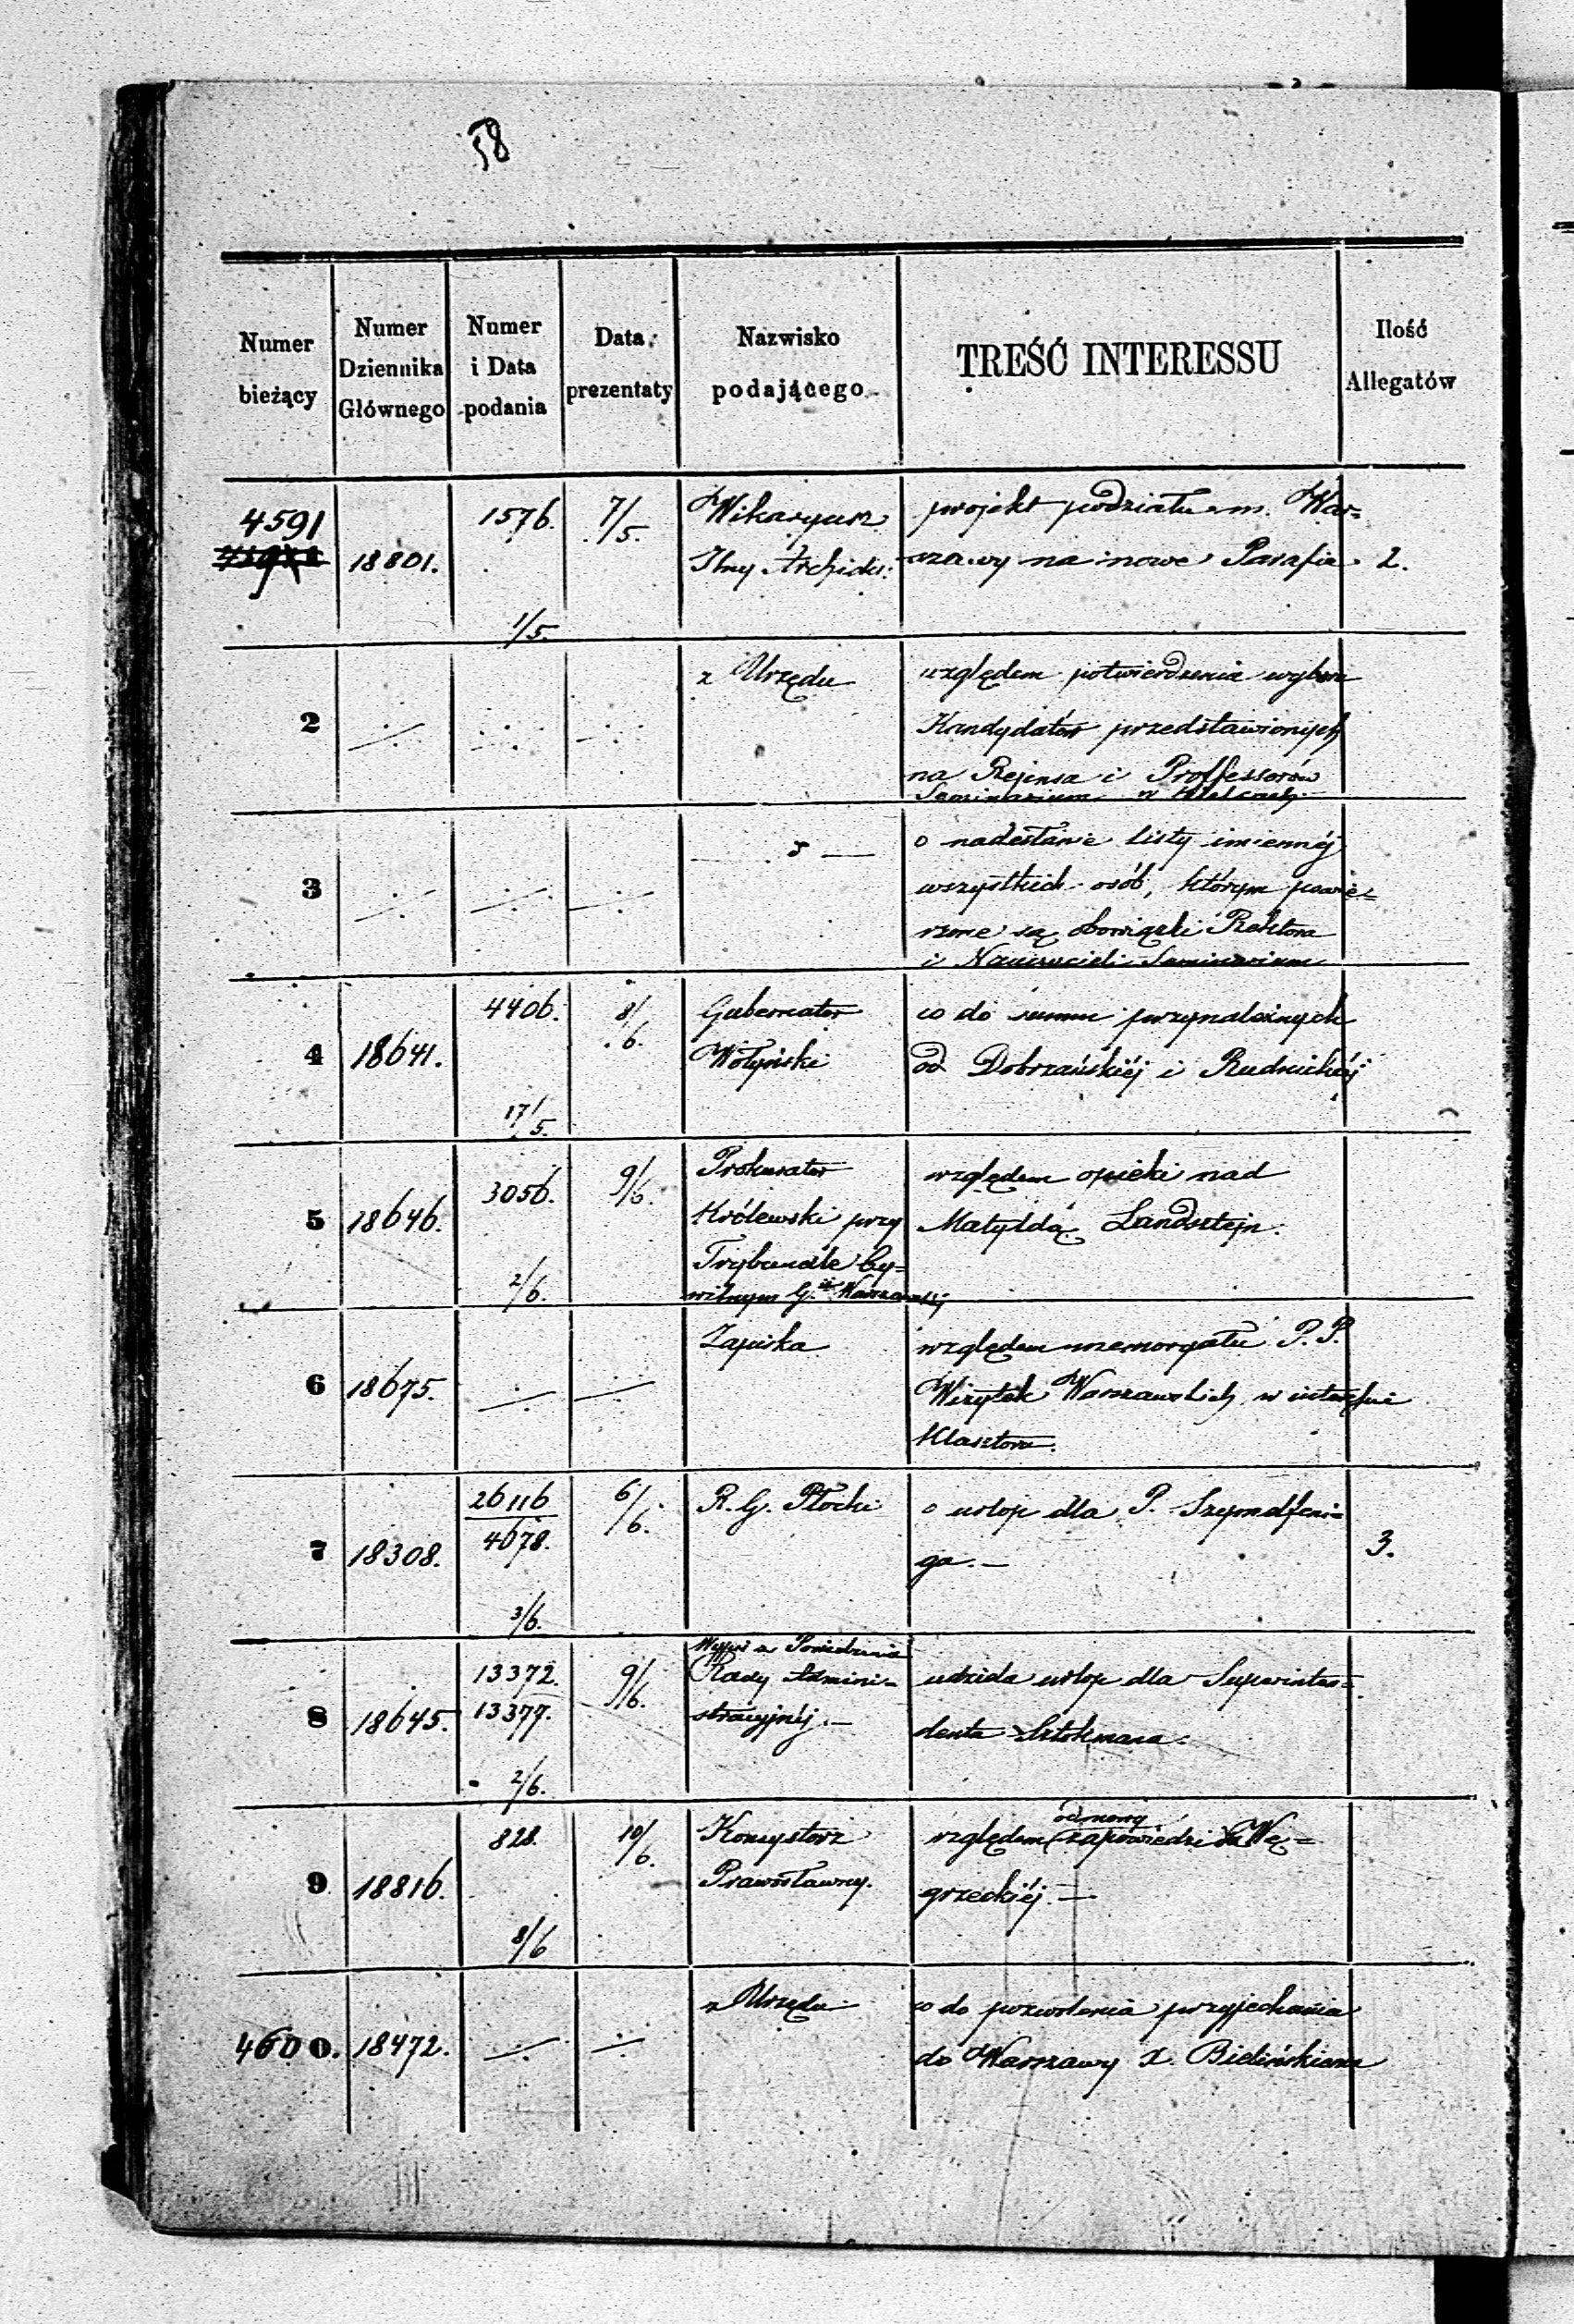 58
Numer bieżący
Numer Dziennika Głównego
Numer i Data podania
Data prezentaty
Nazwisko podającego
TREŚĆ INTERESSU
Ilość Allegatów
4591 18801. 1576. 1/5. 7/5.
Wikaryusz
Jlny Archidie:
projekt podziału m. War=
szawy na nowe Parafie 2.
2
z Urzędu
względem potwierdzenia wyboru
Kandydatów przedstawionych
na Rejensa i Proffessorów
Seminarium w Kielcach.
3
o nadesłanie listy imiennéj
wszystkich osób, którym powie=
rzone są obowiązki Rektora
i Nauczycieli Seminarium
4 18641. 4406. 17/5. 8/6.
Gubernator
Wołyński
co do summ przynależnych
od Dobrzańskiéj i Rudnickiéj
5 18646. 3056. 2/6. 9/6.
Prokurator
Królewski przy
Trybunale Cy=
wilnym G. Warszawskiéj
względem opieki nad
Matyldą Landsztejn.
6 18675.
Zapiska
względem memoryału P. P.
Wizytek Warszawskich w interesie
Klasztoru.
7 18308. 26116 4678. 3/6. 6/6.
R. G. Płocki
o urlop dla P. Szymelfeni=
ga. — 3.
8 18645. 13372. 13377. 2/6. 9/6.
Wypis z Posiedzenia
Rady Admini=
stracyjnéj. —
udziela urlop dla Superinten=
denta Sztokmana.
9 18816. 828. 8/6 10/6.
Konsystorz
Prawosławny.
odmowy
względem zapowiedzi Wę=
grzeckiéj. —
4600. 18472.
z Urzędu
co do pozwolenia przyjechania
do Warszawy X. Bielińskiemu